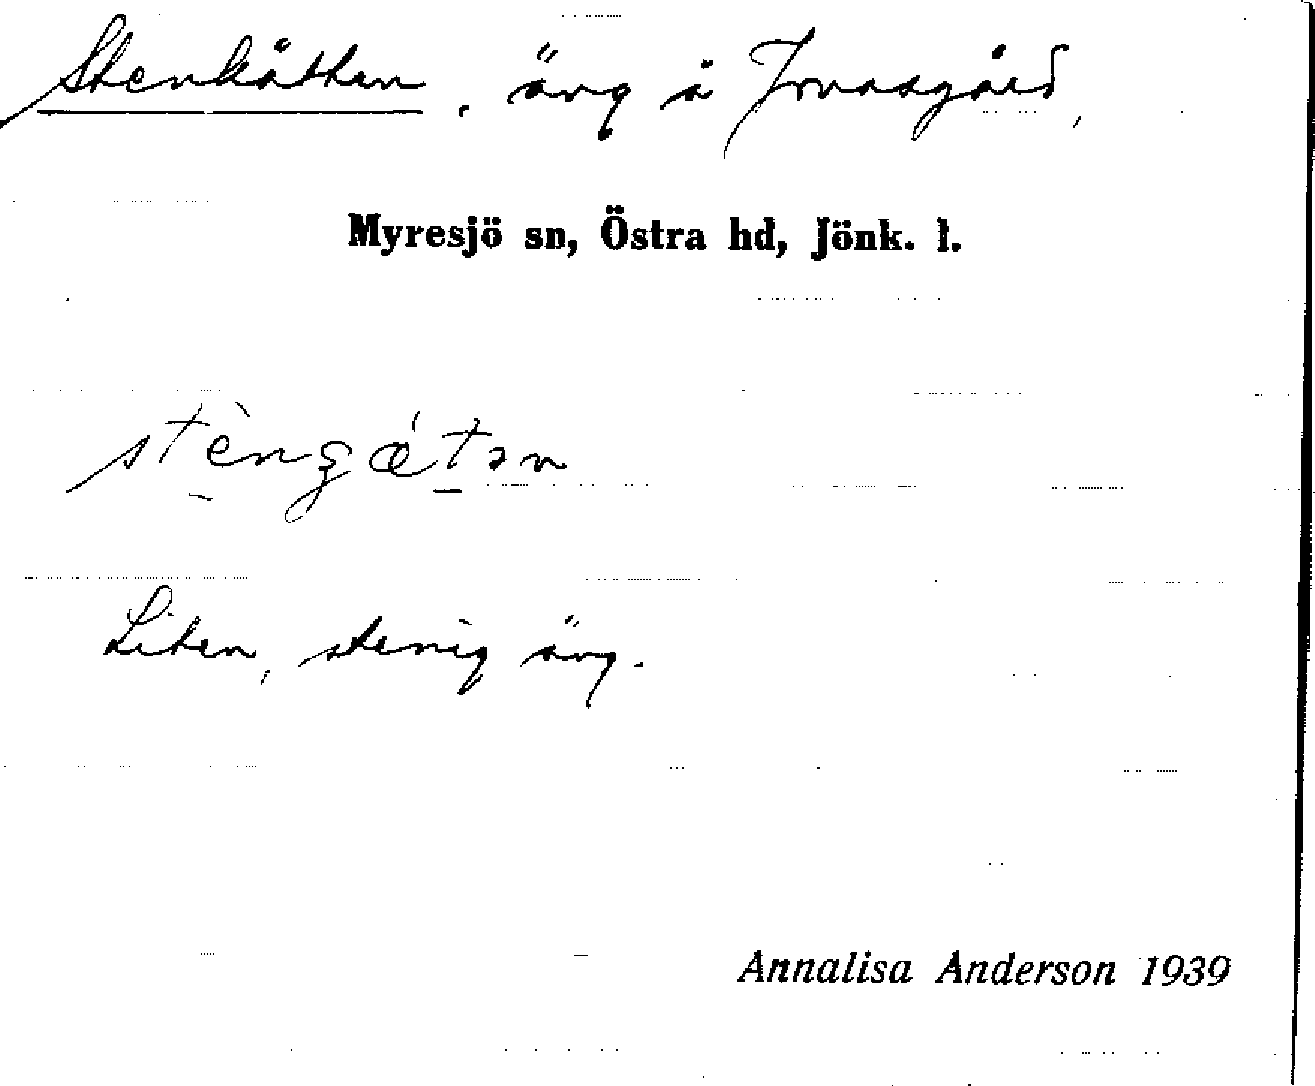 Stenkåtten, äng å
Myresjö sn, Östra hd, Jönk. l.
Liten, stenig äng.
Annalisa Anderson 1939